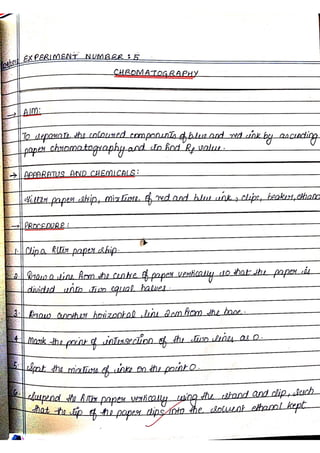 EXPERIMENT NUMBER: 5
CHROMATOGRAPHY
→ AIM:
To seperate the coloured components of blue and red ink by ascending
paper chromatography and to find Rf value.
→ APPARATUS AND CHEMICALS:
Filter paper strip, mixture of red and blue ink, clips, beaker, ethan
→ PROCEDURE:
1. Clip a filter paper strip.
2. Draw a line from the centre of paper vertically so that the paper is
divided into two equal halves.
3. Draw another horizontal line 2cm from the base.
4. Mark the point of intersection of the two lines as O.
5. Spot the mixture of inks on the point O.
6. Suspend the filter paper vertically using the stand and clip, such
that the tip of the paper dips into the solvent ethanol kept